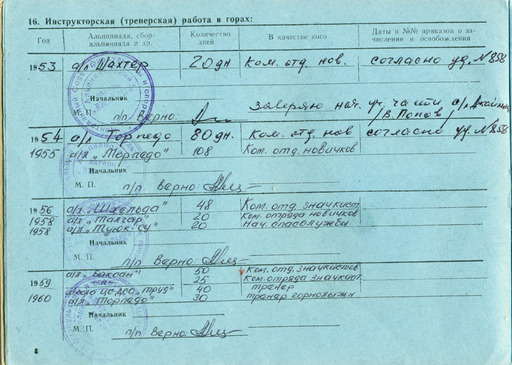 16. Инструкторская (тренерская) работа в горах:
Год
Альплагерь, сбор, альпиниада и др.
Количество дней
В качестве кого
Даты и №№ приказов о зачислении и освобождении
1953 а/л Шахтер 20 дн Ком. отд. нов. согласно уд. №858
Начальник
М. П. п/п Верно
Заверяю нач. уч. части а/л
/В. Попов/
1954 а/л Торпедо 80 дн. Ком. отд. нов согласно уд. №858
1955 а/л „Торпедо" 108 Ком. отд. новичков
Начальник
М. П. п/п Верно
1956 а/л „Шхельда" 48 Ком. отд. значкист
1958 а/л „Талгар" 20 Ком. отряда новичков
1958 а/л „Туюк-Су" 20 Нач. спасслужбы
Начальник
М. П. п/п Верно
1959 а/л „Баксан" 50 Ком. отд. значкистов
25 Ком. отряда значкист
ДСО Труд" 40 тренер
1960 а/л „Торпедо" 30 тренер горнолыжн
Начальник
М. П. п/п Верно
8